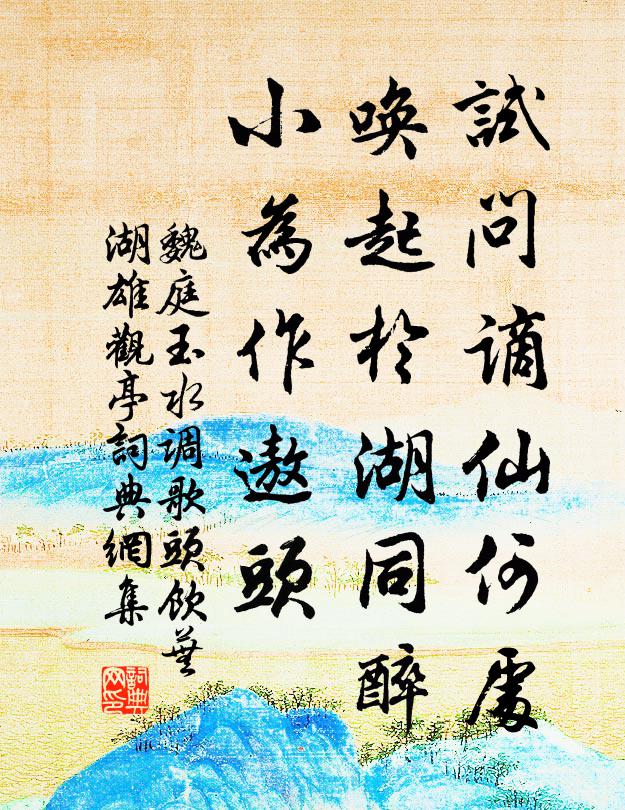 試问谪仙何處
唤起於湖同醉
小為作遨頭
魏庭玉水调歌頭飲蕪
湖雄觀亭詞典網集
詞典网印